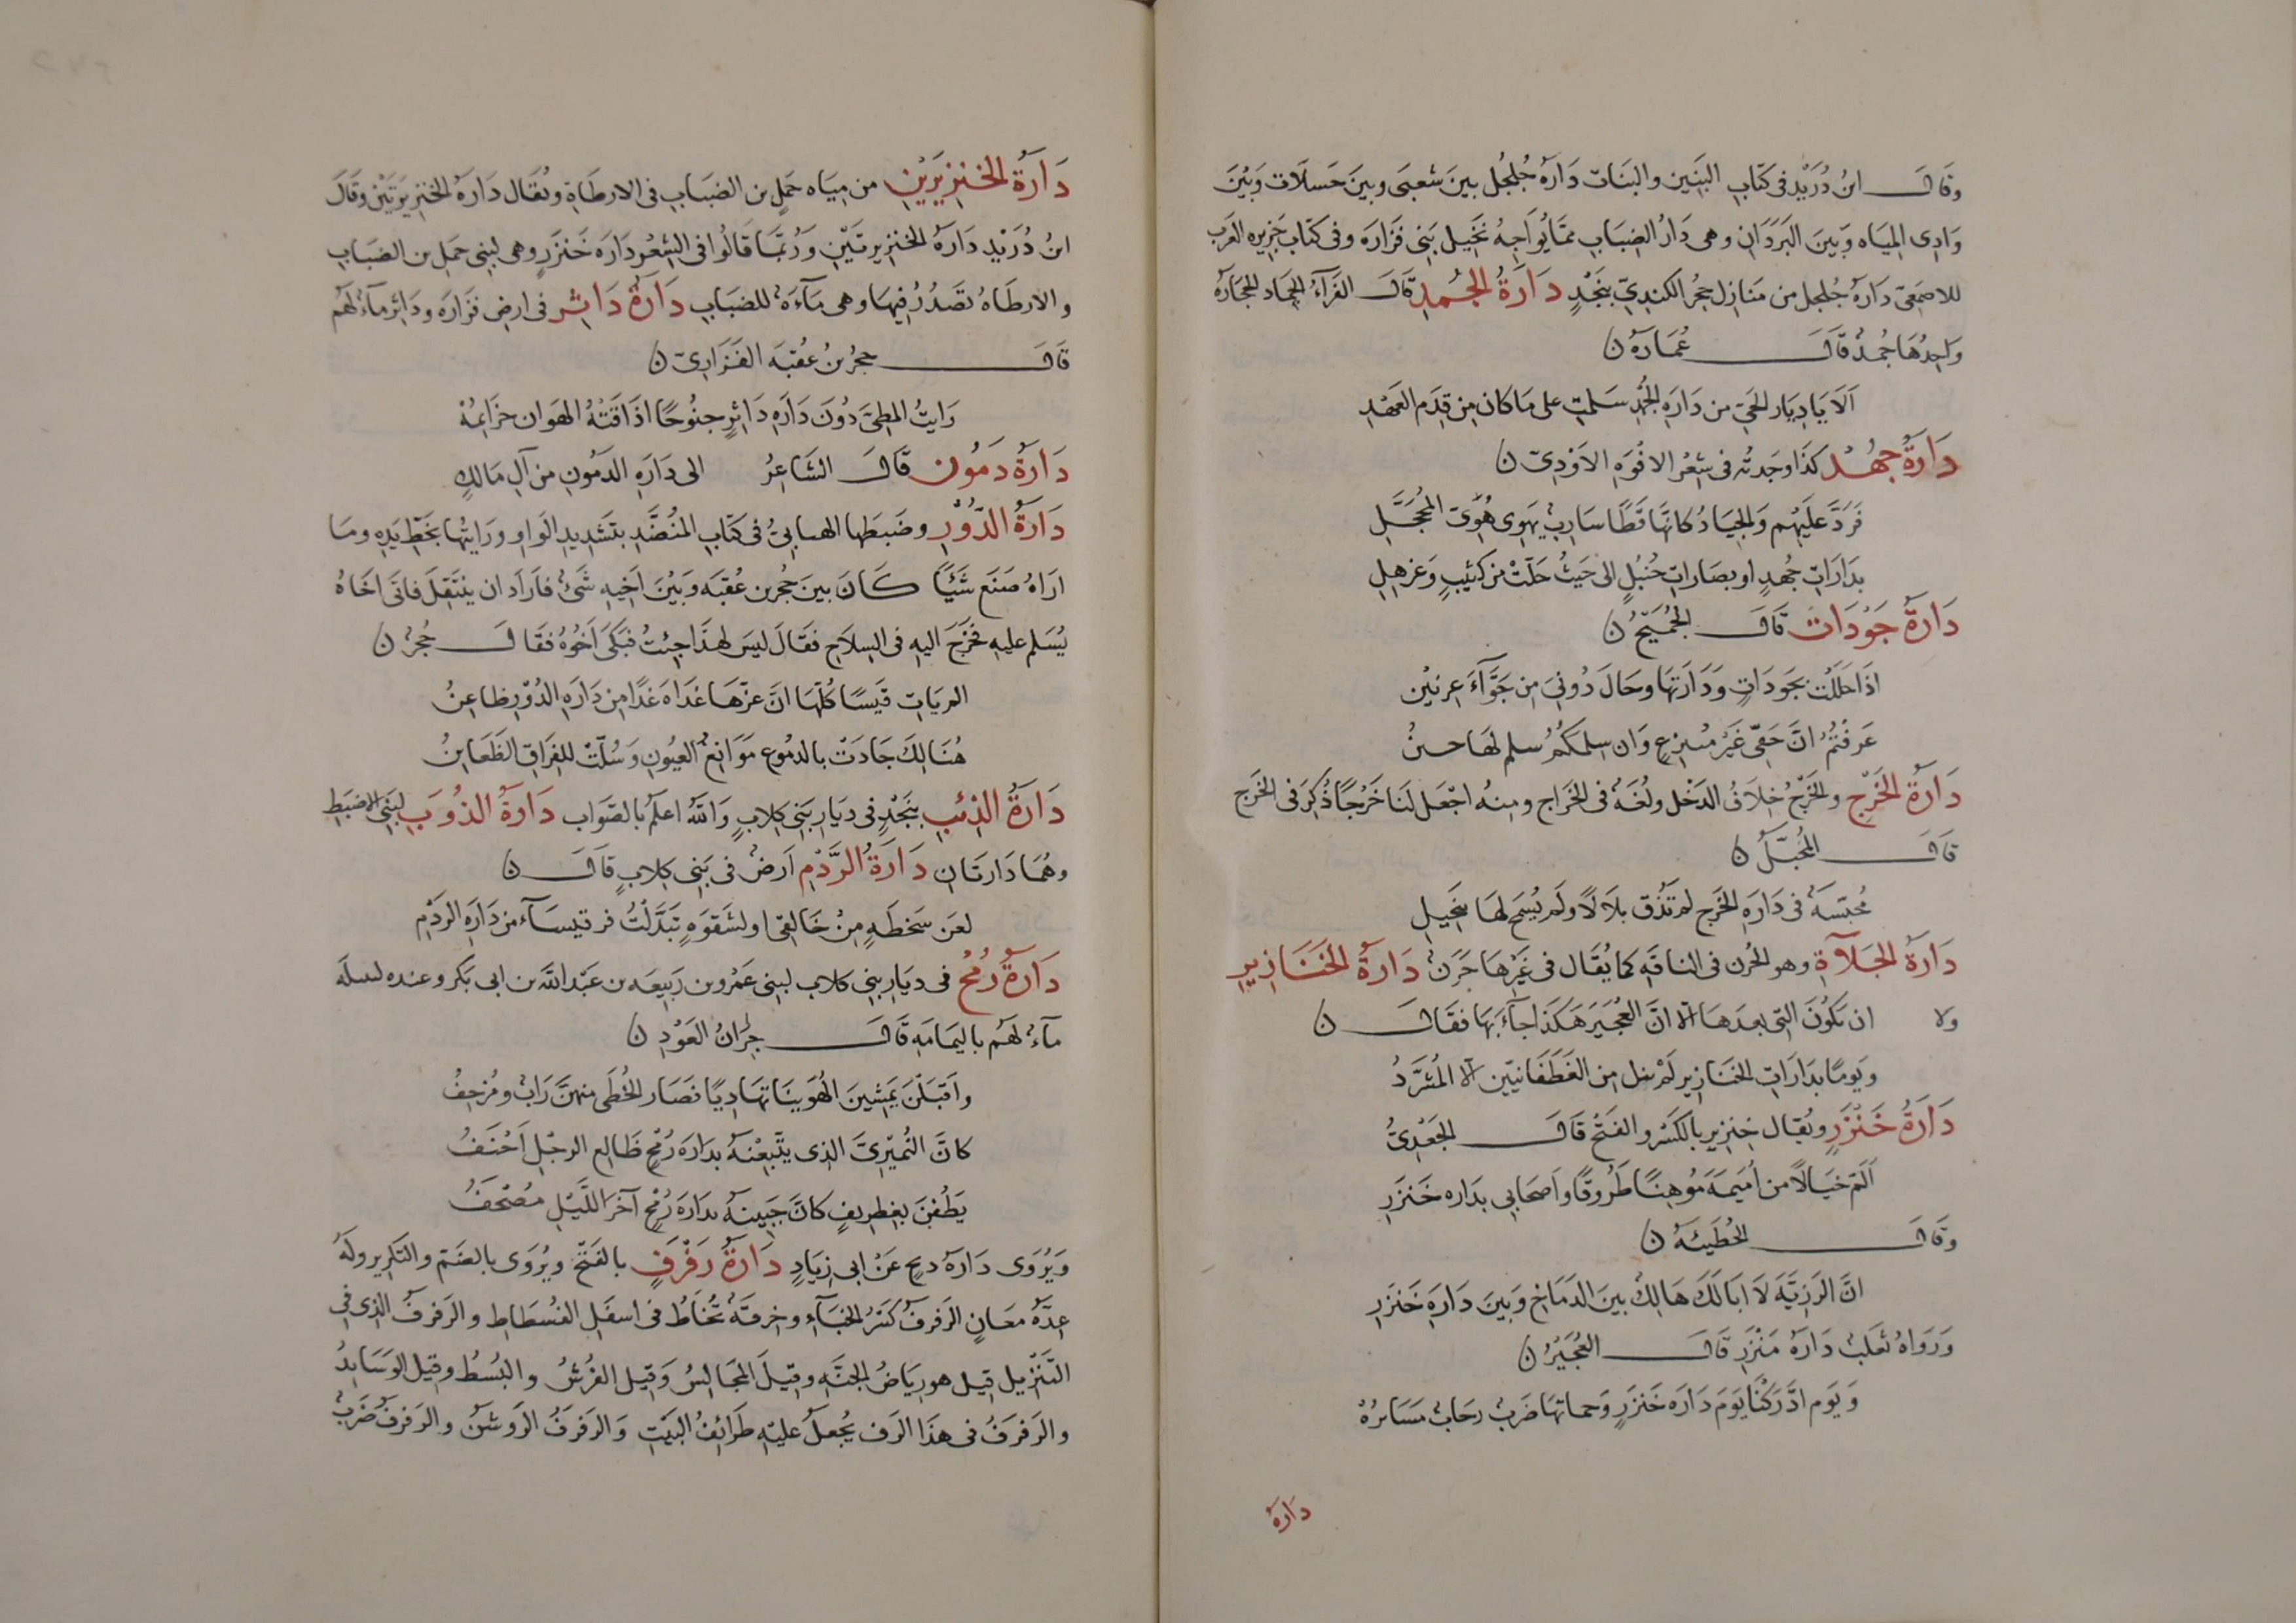 وقال ابنُ دُرَيْدٍ فى كتَابِ البَنِينَ والبَنَات دَارَةُ جُلجُل بينَ شعبَى وبينَ حَسلَات وَبَيْنَ
وَادِى المِيَاه وَبَينَ البَرَدَانِ وهى دَارُ الضِبَابِ ممَّا يُوَاجِهُ نَخِيل بَنِى فزَارَه وفى كتَابِ جَزِيره العَرب
للاصمَعِىّ دَارَةُ جُلجل من مَنَازِل حجُر الكندِىّ بنَجْدٍ دَارَةُ الجُمدِ قَالَ الفَرَّآءُ الجمَاد الحجَارَه
وَاحِدُهَا جُمدُ قَالَ عُمَارَه ن
اَلَا يَا دِيَار الحَىّ من دَارَةِ الجُمدِ سَلمتِ على مَا كان مِن قِدَم العَهْدِ
دَارَةُ جُهْد كذَا وجَدتُه فى شِعْرُ الافوَهِ الاَوْدِىّ ن
فَرَدَّ عَلَيْهِم وَالجِيَادُ كانّهَا قَطًا سَارِبٌ يَهوِى هُوِىّ المُحَجَّلِ
بدَارَاتِ جُهدٍ او بصَارَاتِ جُنبُلٍ الى حَيثُ حَلّتْ من كثيبٍ وَعَزهِلِ
دَارَةُ جَوْدَات قَالَ الجُمَيحُ ن
اذَا حَلَلتُ بجَودَاتٍ وَدَارَتهَا وحَالَ دُونىَ مِن حَوَّآءَ عِرنينُ
عَرفتُمُ انّ حَقّى غَيْرُ مُنتزِعٍ وَان سلمكُمُ سلم لهَا حسنُ
دَارَةُ الخَرْجِ والخَرْجُ خِلَافُ الدَخْل ولُغَةُ فى الخَرَاج ومِنهُ اجْعَل لنَا خَرْجًا ذُكِرَ فى الخَرج
قَالَ المُخَبَّلُ ن
مُحَبَّسَةُ فى دَارَةِ الخَرج لم تَذُق بلَالًا ولَم يُسْمَح لهَا بنَجِيلِ
دَارَةُ الخَلآةِ وهو الحُرن فى الناقَهِ كما يُقَال فى غَيْرهَا حَرَن دَارَةُ الخَنَازِيرِ
ولا ان يكُونَ التى بعدَهَا الا انّ العُجَيرَ هَكذَا جآءَ بهَا فقَالَ ن
وَيَومًا بدَارَاتِ الخَنَازِيرِ لَم يئل مِن الغَطَفَانيّينَ الا المُشَرَّدُ
دَارَةُ خَنْزَرٍ ويُقال خِنزير بالكَسْر والفَتْح قَالَ الجَعْدِىُّ
اَلَمّ خيَالًا من اُمَيمَةَ مَوُهِنًا طَرُوقًا وَاَصحَابى بدَارِه خَنزَرِ
وقَالَ الحُطَيئَه ن
انَّ الرَزِيَّةَ لَا ابَا لَكَ هَالِكٌ بينَ الدَمَاخِ وَبَينَ دَارَةِ خَنزَرِ
وَرَوَاهُ ثعلبُ دَارَه مَنْزَرِ قَالَ العُجَيْرُ ن
وَيَوم ادَّرَكْنَا يَوَمَ دَارَه خَنزَرٍ وَحماتهَا ضَربُ رحَابُ مَسَايرُهْ
دَارَة
دَارَةُ الخنِزيرَيْنِ من مِيَاه حمَلٍ بن الضبَابِ فى الارطَاةِ ويُقَال دَارَةُ الخنزيرَتَيْن وقَالَ
ابنُ دُرَيْدٍ دَارَةُ الخنزيرتَيّنِ وَرُبّمَا قَالُوا فى الشِعْرِ دَارَه خَنْزَرٍ وهى لبنِى حمَل بن الضبَابِ
والارطَاهُ تصَدُرُ فِيهَا وهى مآءَةُ للضبَابِ دَارَةُ دَاثِرِ فى ارض فزَارَه ودَاثر مآءُ لهُم
قَالَ حجرُ بنُ عُقبَه الفَزَارِىّ ن
رَايتُ المطِىّ دُونَ دَارَةِ دَاثرٍ جنُوحًا اذَاقَتهُ الهَوَان خزَايمُهْ
دَارَةُ دَمُون قَالَ الشَاعِرُ الى دَارَةِ الدَمُونِ من آلِ مَالكِ
دَارَةُ الدُّوْرِ وضَبَطهَا الهنابىّ فى كتَاب المُنَضَّدِ بتَشدِيدِ الوَاوِ ورَايتُها بخَطّ يَدِهِ ومَا
ارَاهُ صَنَعَ شَيئًا كَانَ بينَ حُجر بن عُقبَه وَبَيْنَ اَخِيهِ شَىءُ فارَادَ ان ينتَقلَ فاتَى اخَاهُ
يُسَلم عليهِ فخَرَجَ اليهِ فى السِلَاحِ فقَالَ ليسَ لهَذَا جِئتُ فبَكَى اَخُوُهُ فقَالَ حُجرُ ن
الم يَات قَيسًا كُلّهَا انّ عزّهَا غدَاة غَدًا مِن دَارَةِ الدُوّرِ ظاعِنُ
هُنَالِكَ جَادَتْ بالدمُوع مَوَانِعُ العيُونِ وَسُلّتْ للِفرَاقِ الظَعَاينُ
دَارَةُ الذئبِ بنَجْدٍ فى دِيَارِ بَنِى كِلابٍ وَاللهُ اعلَمُ بالصّوَابِ دَارَةُ الذُوَيبِ لبَنِى الاضبَطِ
وهُمَا دَارتَانِ دَارَةُ الرَّدْمِ اَرضُ فى بَنِى كِلابٍ قَالَ ن
لعَن سَخطَةٍ مِنْ خَالِقى او لشَقوَةٍ تبَدَّلْتُ قرقيسَآءَ من دَارَةِ الرَدْمِ
دَارَةُ رُمْحُ فى دِيَارِ بنِى كلاب لبنِى عَمرو بن رَبيعَه بن عَبْدِ اللَّهِ بن ابى بَكر وعنده
مآءُ لهُم باليمَامَهِ قَالَ جِرَانُ العَوْدِ ن
واَقبَلْنَ يَمْشِينَ الهُوَينَا تهَادِيًا قصَار الخُطَى منهنّ رَابُ ومُزحِفُ
كانّ النُميْرِىّ الذِى يتّبِعْنَهُ بدَارَة رُمْحٍ ظَالع الرجْلِ اَحْنَفُ
يَطُفْنَ بغِطرِيفٍ كانّ جَبِينَهُ بدَارَة رُمْحٍ آخرَ اللّيْلِ مُصْحَفُ
وَيُرْوَى دَارَة دمح عَنْ ابى زيَادٍ دَارَةُ رَفْرَفٍ بالفَتْحِ ويُرْوَى بالضَم والتكِرير ولَهُ
عِدّةُ معَانٍ الرَفرفُ كَسْرُ الخبَآءِ وخِرقَةُ تُخَاطُ فى اسفَلِ الفُسطَاطِ والرَفرَفُ الذِى فى
التّنَزِيل قِيل هو رِيَاضُ الجَنّهِ وقِيلَ المجَالِسُ وَقِيل الفُرُشُ والبُسُطُ وقِيل الوَسَايدُ
والرَفرَفُ فى هذَا الرَف يُجعَلُ علَيْهِ طَرَائِفُ البَيْتِ وَالرَفرَفُ الرَوشنُ والرَفرَفُ ضَربُ